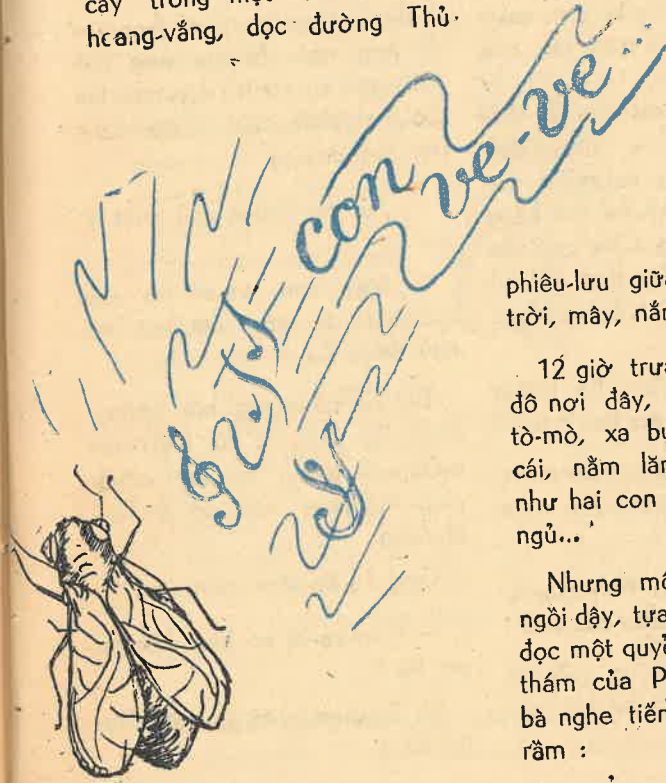 cây trong một
hoang-vắng, dọc đường Thủ.
con
ve-ve...
phiêu-lưu giữa
trời, mây, nắn
12 giờ trưa
đô nơi đây,
tò-mò, xa bụ
cái, nằm lăn
như hai con
ngủ...
Nhưng mộ
ngồi dậy, tựa
đọc một quyể
thám của P
bà nghe tiến
rầm :